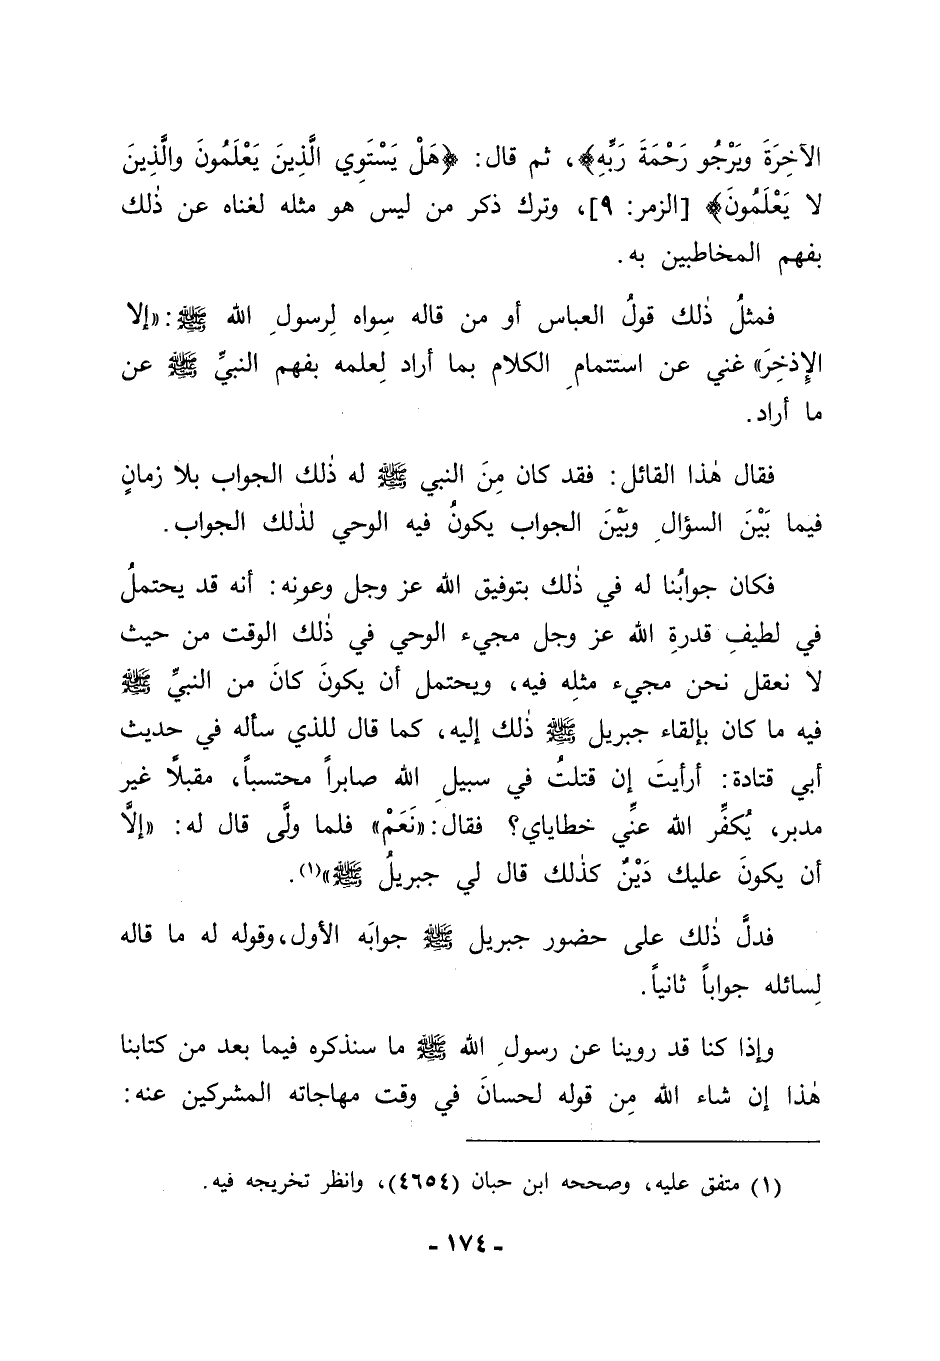 الآخِرَةَ ويَرْجُو رَحْمَةَ رَبِّهِ﴾، ثم قال: ﴿هَلْ يَسْتَوِي الَّذِينَ يَعْلَمُونَ والَّذِينَ
لا يَعْلَمُونَ﴾ [الزمر: ٩]، وترك ذكر من ليس هو مثله لغناه عن ذٰلك
بفهم المخاطبين به.
فمثلُ ذٰلك قولُ العباس أو من قاله سِواه لِرسولِ الله ﷺ: «إلا
الإِذخِرَ» غني عن استتمامِ الكلام بما أراد لِعلمه بفهم النبيِّ ﷺ عن
ما أراد.
فقال هٰذا القائل: فقد كان مِنَ النبي ﷺ له ذٰلك الجواب بلا زمانٍ
فيما بَيْنَ السؤالِ وبَيْنَ الجواب يكونُ فيه الوحي لذٰلك الجواب.
فكان جوابُنا له في ذٰلك بتوفيق الله عز وجل وعونِه: أنه قد يحتملُ
في لطيفِ قدرةِ الله عز وجل مجيء الوحي في ذٰلك الوقت من حيث
لا نعقل نحن مجيء مثلِه فيه، ويحتمل أن يكونَ كانَ من النبيِّ ﷺ
فيه ما كان بإلقاء جبريل ﷺ ذٰلك إليه، كما قال للذي سأله في حديث
أبي قتادة: أرأيتَ إن قتلتُ في سبيلِ الله صابراً محتسباً، مقبلًا غير
مدبر، يُكفِّر الله عنِّي خطاياي؟ فقال: «نَعَمْ» فلما ولَّى قال له: «إلَّا
أن يكونَ عليك دَيْنٌ كذٰلك قال لي جبريلُ ﷺ»(١).
فدلَّ ذٰلك على حضور جبريل ﷺ جوابَه الأول، وقوله له ما قاله
لِسائله جواباً ثانياً.
وإذا كنا قد روينا عن رسولِ الله ﷺ ما سنذكره فيما بعد من كتابنا
هٰذا إن شاء الله مِن قوله لحسانَ في وقت مهاجاته المشركين عنه:
(١) متفق عليه، وصححه ابن حبان (٤٦٥٤)، وانظر تخريجه فيه.
- ١٧٤ -